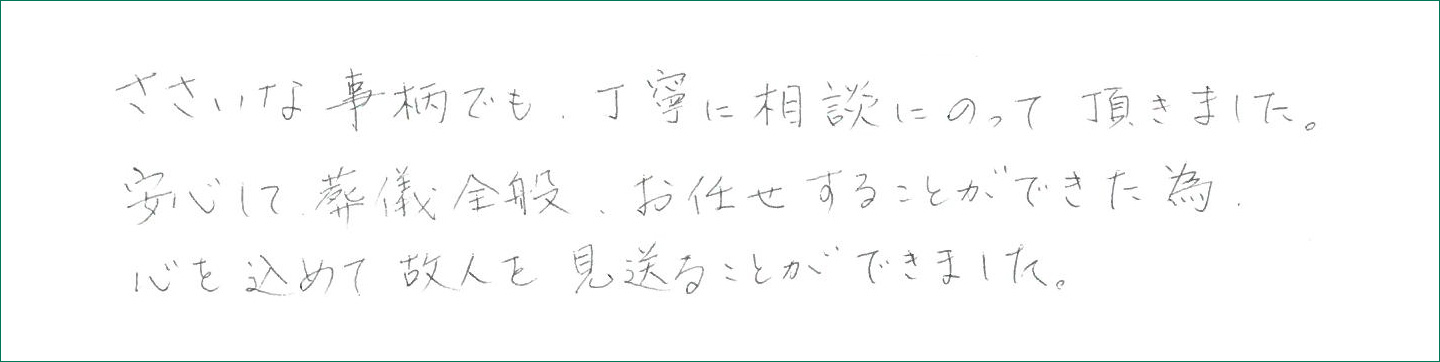 ささいな事柄でも、丁寧に相談にのって頂きました。
安心して、葬儀全般、お任せすることができた為、
心を込めて故人を見送ることができました。